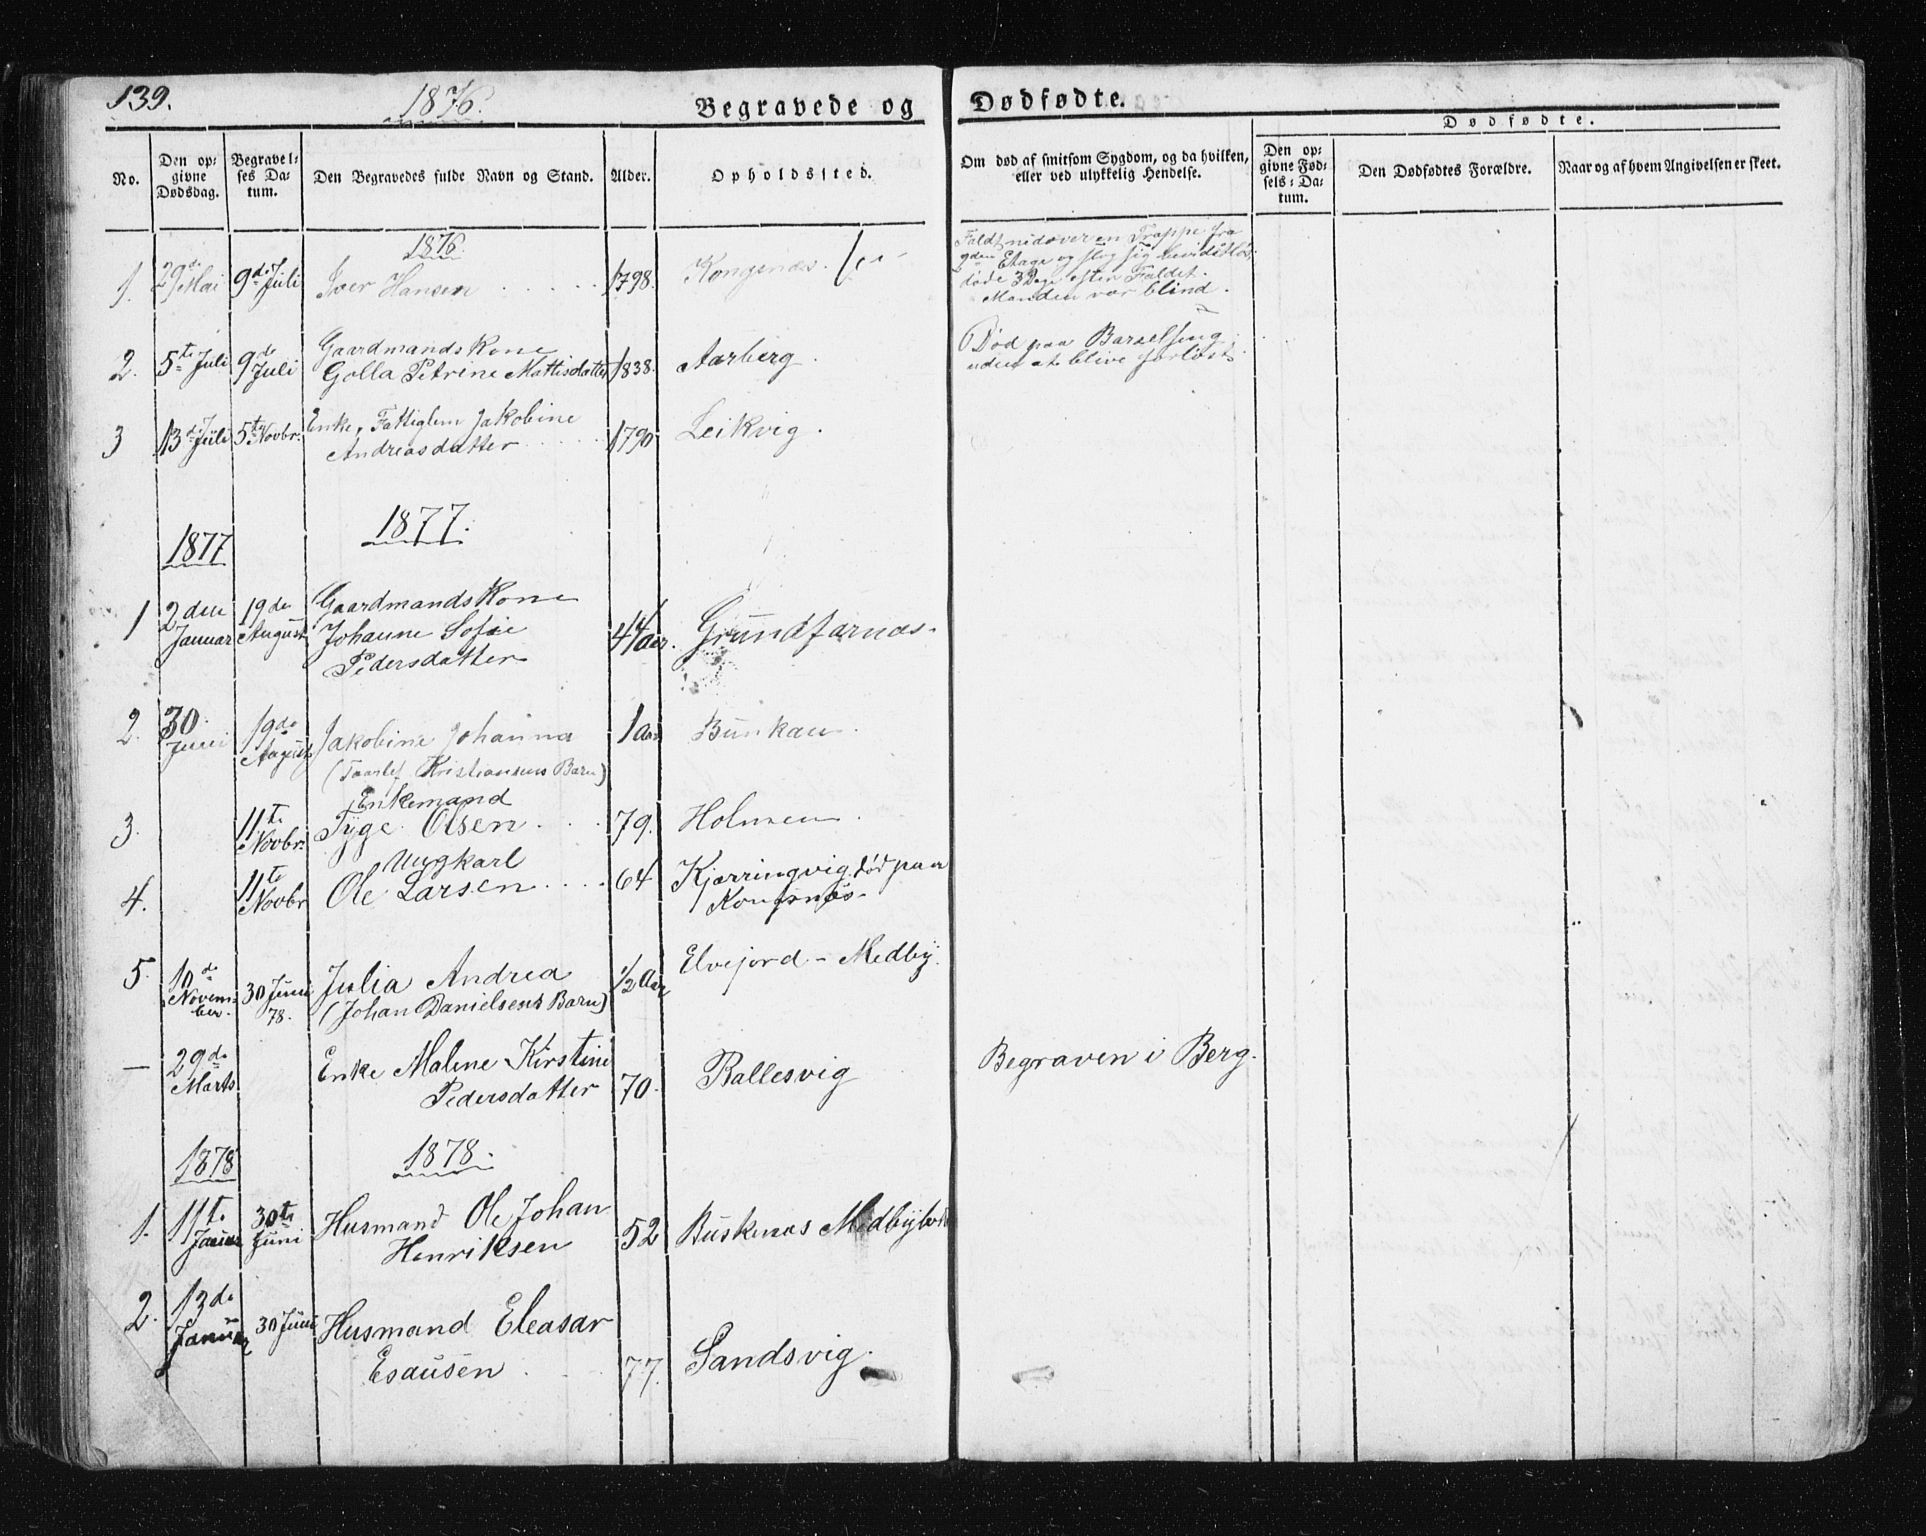 139.
1876.
Begravede og Dødfødte.
Dødfødte.
No.
Den op-
givne
Dødsdag.
Begravel-
ses Da-
tum.
Den Begravedes fulde Navn og Stand.
Alder.
Opholdssted.
Om død af smitsom Sygdom, og da hvilken,
eller ved ulykkelig Hendelse.
Den op-
givne Fød-
sels-Da-
tum.
Den Dødfødtes Forældre.
Naar og af hvem Angivelsen er skeet.
1876
1. 29de Mai 9de Juli Iver Hansen 1798. Kongsnæs.
Faldt nidover en Trappe fra
2den Etage og slog sig bevidstløs
døde 3 Dage efter Faldet.
Manden var blind.
2. 5te Juli 9de Juli Gaardmandskone
Golla Petrine Mattisdatter 1838. Aarberg.
Død paa Barselseng
uden at blive forløst.
3 13de Juli 5te Novbr. Enke, Fattiglem Jakobine
Andreasdatter 1790 Leikvig.
1877.
1877
1 2den Januar 19de August Gaardmandskone
Johanne Sofie
Pedersdatter 44 Aar. Grundfarnæs.
2. 30 Juni 19de August Jakobine Johanna 1 Aar Bunkan.
( Kristiansens Barn)
3. 11te Novbr. Enkemand
Tyge Olsen 79. Holmen.
4. 11te Novbr Ungkarl
Ole Larsen 64 Kjærringvig død paa
Kongsnæs.
5. 10de Novem-
ber. 30 Juni
78. Julia Andrea 1/2 Aar Elvejord - Medby.
(Johan Danielsens Barn)
— 29de Marts Enke Malene Kirstine
Pedersdatter 70. Ballesvig Begraven i Berg.
1878
1878.
1. 11te Januar 30te Juni Husmand Ole Johan
Henriksen 52 Buskenæs
2. 13de Januar 30 Juni Husmand Eleasar
Esausen 77. Sandsvig.